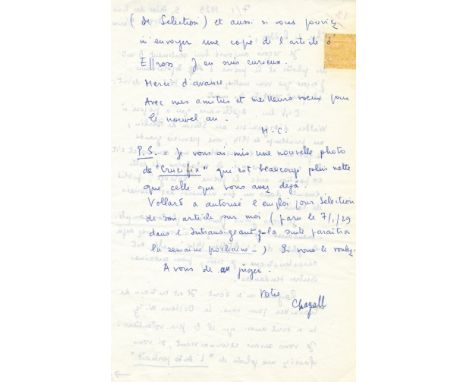 (de Selection) et aussi si vous pouviez
m'envoyer une copie de l'article d'
Effross J'en suis curieux.
Merci d'avance.
Avec mes amitiés et meilleurs voeux pour
le nouvel an.
M.C.
P.S. = Je vous ai mis une nouvelle photo
de "Crucifix" qui est beaucoup plus nette
que celle que vous avez déjà.
Vollard a autorisé l'emploi pour Selection
de son article sur moi (paru le 7/1/29
dans l'Intransigeant - la suite paraitra
la semaine prochaine -) Si vous le voulez.
A vous de juger.
Votre
Chagall